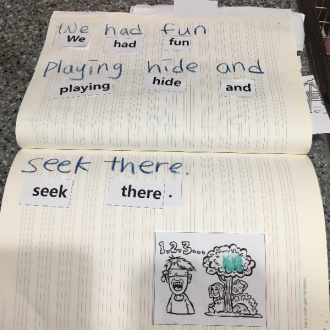 We had fun
We had fun
Playing hide and
playing hide and
seek there.
seek there.
1.2.3...